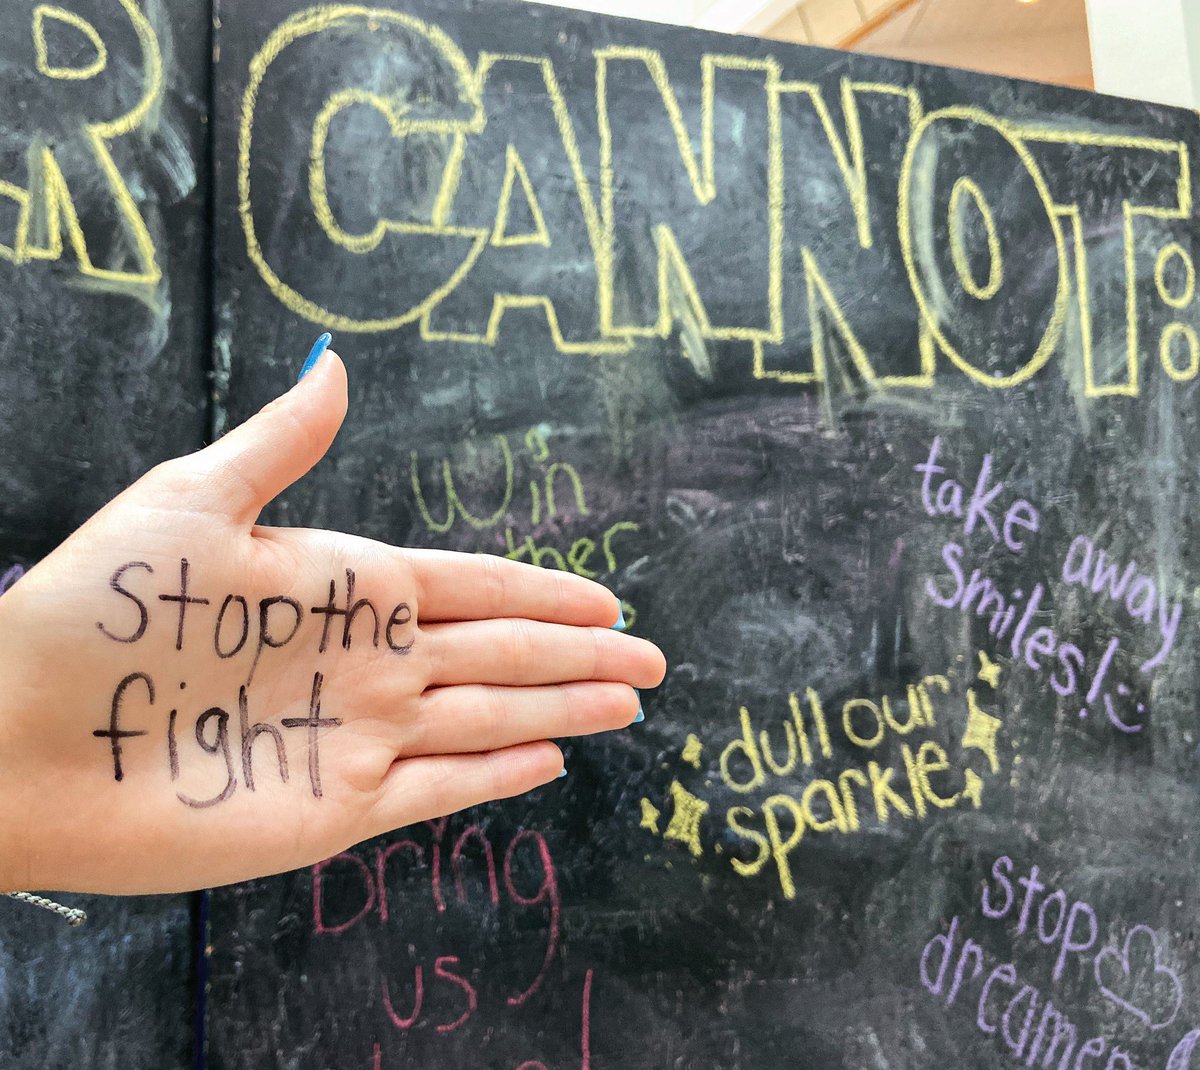 R CANNOT:
Win
take away
smiles! :)
Stop the
fight
dull our
sparkle
bring
us
stop